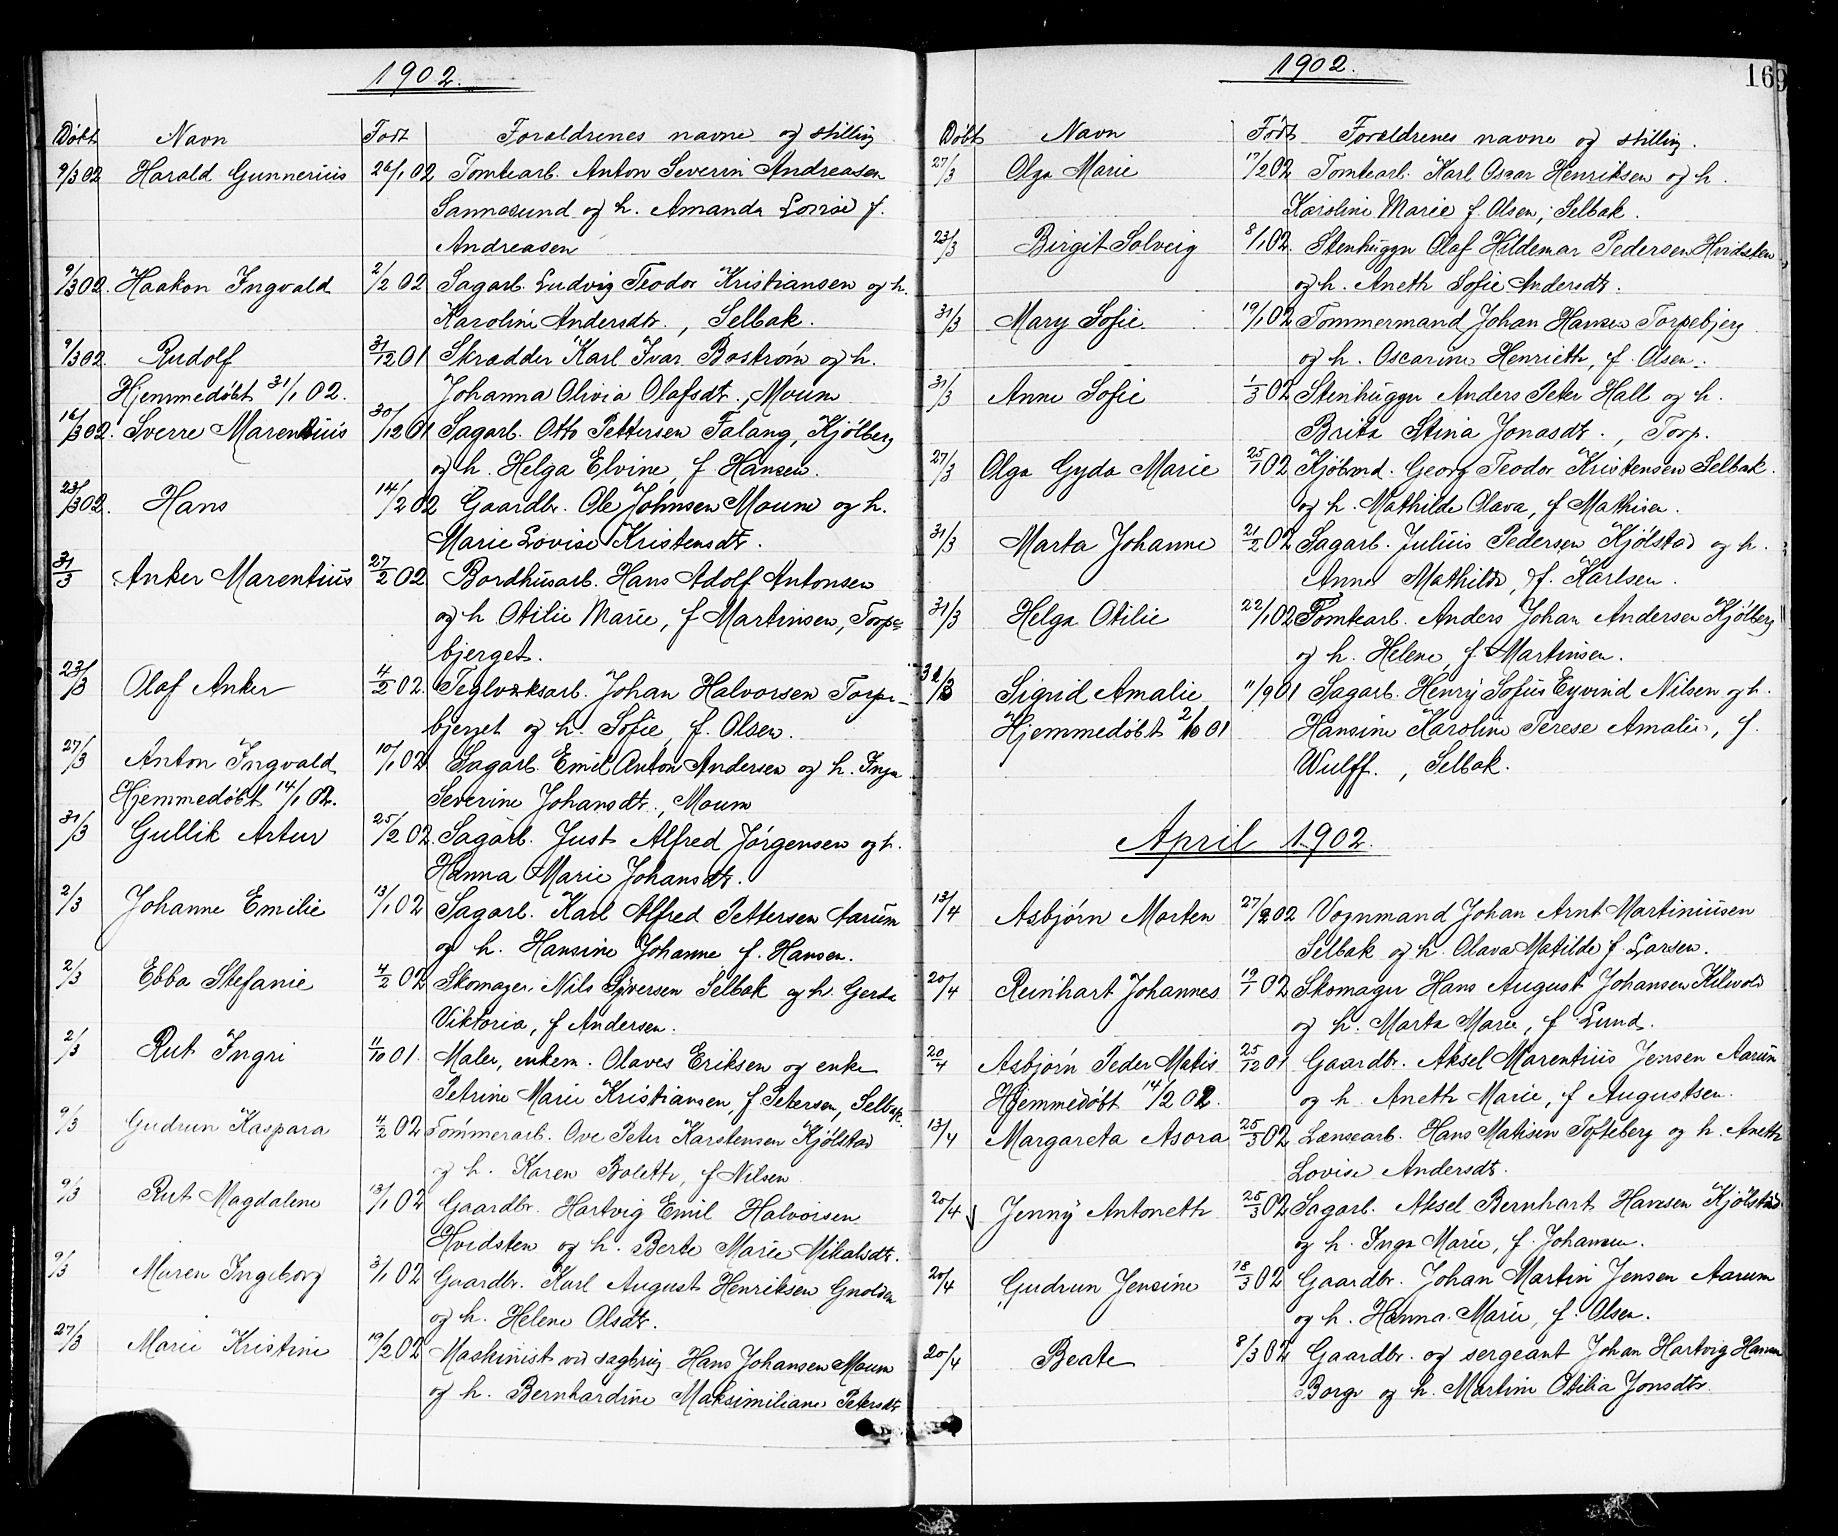 1902.
Døbt Navn Født Forældrenes navne og stilling
9/3 02 Harald Gunnerius 26/1 02 Tomtearb. Anton Severin Andreasen
Sannesund og h. Amanda Lovise f.
Andreasen
9/3 02. Haakon Ingvald 2/2 02 Sagarb. Ludvig Teodor Kristiansen og h.
Karoline Andersdtr., Selbak.
9/3 02. Rudolf 31/12 01 Skrædder Karl Ivar Boström og h.
Hjemmedøbt 31/1 02. Johanna Olivia Olafsdtr., Moum
16/3 02. Sverre Marentius 30/12 01 Sagarb. Otto Pettersen Falang, Kjølberg
og h. Helga Elvine, f. Hansen.
23/3 02. Hans 14/2 02 Gaardbr. Ole Johnsen Moum og h.
Marie Lovise Kristensdtr.
31/3 Anker Marentius 27/2 02 Bordhusarb. Hans Adolf Antonsen
og h Otilie Marie, f Martinsen, Torpe-
bjerget.
23/3 Olaf Anker 4/2 02. Teglværksarb. Johan Halvorsen Torpe-
bjerget og h. Sofie, f. Olsen.
27/3 Anton Ingvald 10/1 02 Sagarb. Emil Anton Andersen og h. Inga
Hjemmedøbt 14/1 02. Severine Johansdtr., Moum
31/3 Gullik Artur 25/2 02 Sagarb. Just Alfred Jørgensen og h.
Hanna Marie Johansdtr.
2/3 Johanne Emilie 13/1 02 Sagarb. Karl Alfred Pettersen Aarum
og h. Hansine Johanne f. Hansen.
2/3 Ebba Stefanie 4/2 02 Skomager. Nils Syversen Selbak og h. Gerda
Viktoria, f Andersen.
2/3 Rut Ingri 11/10 01. Maler, enkem. Olaves Eriksen og enke
Petrine Marie Kristiansen, f Petersen, Selbak.
9/3 Gudrun Kaspara 4/2 02 Tømmerarb. Ove Peter Karstensen Kjølstad
og h. Karen Bolette, f Nilsen
9/3 Rut Magdalene 13/1 02 Gaardbr. Hartvig Emil Halvorsen
Hvidsten og h. Berte Marie Mikalsdtr.
9/3 Maren Ingeborg 3/1 02 Gaardbr. Karl August Henriksen Gnolden
og h. Helene Olsdtr.
27/3 Marie Kristine 19/2 02 Maskinist ved sagbrug Hans Johansen Moum
og h. Bernhardine Maksimiliane Petersdtr
1902.
169
Døbt Navn Født Forældrenes navne og stilling.
27/3 Olga Marie 17/2 02 Tomtearb. Karl Oscar Henriksen og h.
Karoline Marie f. Olsen, Selbak.
23/3 Birgit Solveig 8/1 02. Stenhugger Olaf Hildemar Pedersen Hvidsten
og h. Anethe Sofie Andersdtr.
31/3 Mary Sofie 19/1 02 Tømmermand Johan Hansen Torpebjerg
og h. Oscarine Henriette, f. Olsen.
31/3 Anne Sofie 1/3 02 Stenhugger Anders Peter Hall og h.
Brita Stina Jonasdtr., Torp.
27/3 Olga Gyda Marie 25/1 02 Kjøbmd. Georg Teodor Kristensen Selbak.
og h. Mathilde Olava, f Mathisen.
31/3 Marta Johanne 21/2 02 Sagarb. Julius Pedersen Kjølstad og h.
Anne Mathilde, f. Karlsen.
31/3 Helga Otilie 22/1 02 Tomtearb. Anders Johan Andersen Kjølberg
og h. Helene, f. Martinsen.
31/3 Sigrid Amalie 11/9 01 Sagarb. Henry Sofus Eyvind Nilsen og h.
Hjemmedøbt 2/10 01 Hansine Karoline Terese Amalie, f.
Wulff., Selbak.
April 1902.
13/4 Asbjørn Morten 27/2 02 Vognmand Johan Arnt Martiniusen
Selbak og h. Olava Matilde f Larsen.
20/4 Reinhart Johannes 19/1 02 Skomager Hans August Johansen Kilevold
og h. Marta Marie, f Lund.
20/4 Asbjørn Peder Matis 25/12 01 Gaardbr. Aksel Marentius Jensen Aarum
Hjemmedøbt 14/2 02. og h. Anette Marie, f Augustsen.
13/4 Margareta Asora 25/3 02 Lænsearb. Hans Matisen Tofteberg og h. Anette
Lovise Andersdtr.
20/4 Jenny Antonette 25/3 02 Sagarb. Aksel Bernhart Hansen Kjølstad
og h. Inga Marie, f. Johansen.
20/4 Gudrun Jensine 18/3 02 Gaardbr. Johan Martin Jensen Aarum
og h. Hanna Marie, f. Olsen.
20/4 Beate 8/3 02 Gaardbr. og sergeant Johan Hartvig Hansen
Borge og h. Martine Otilia Jonsdtr.